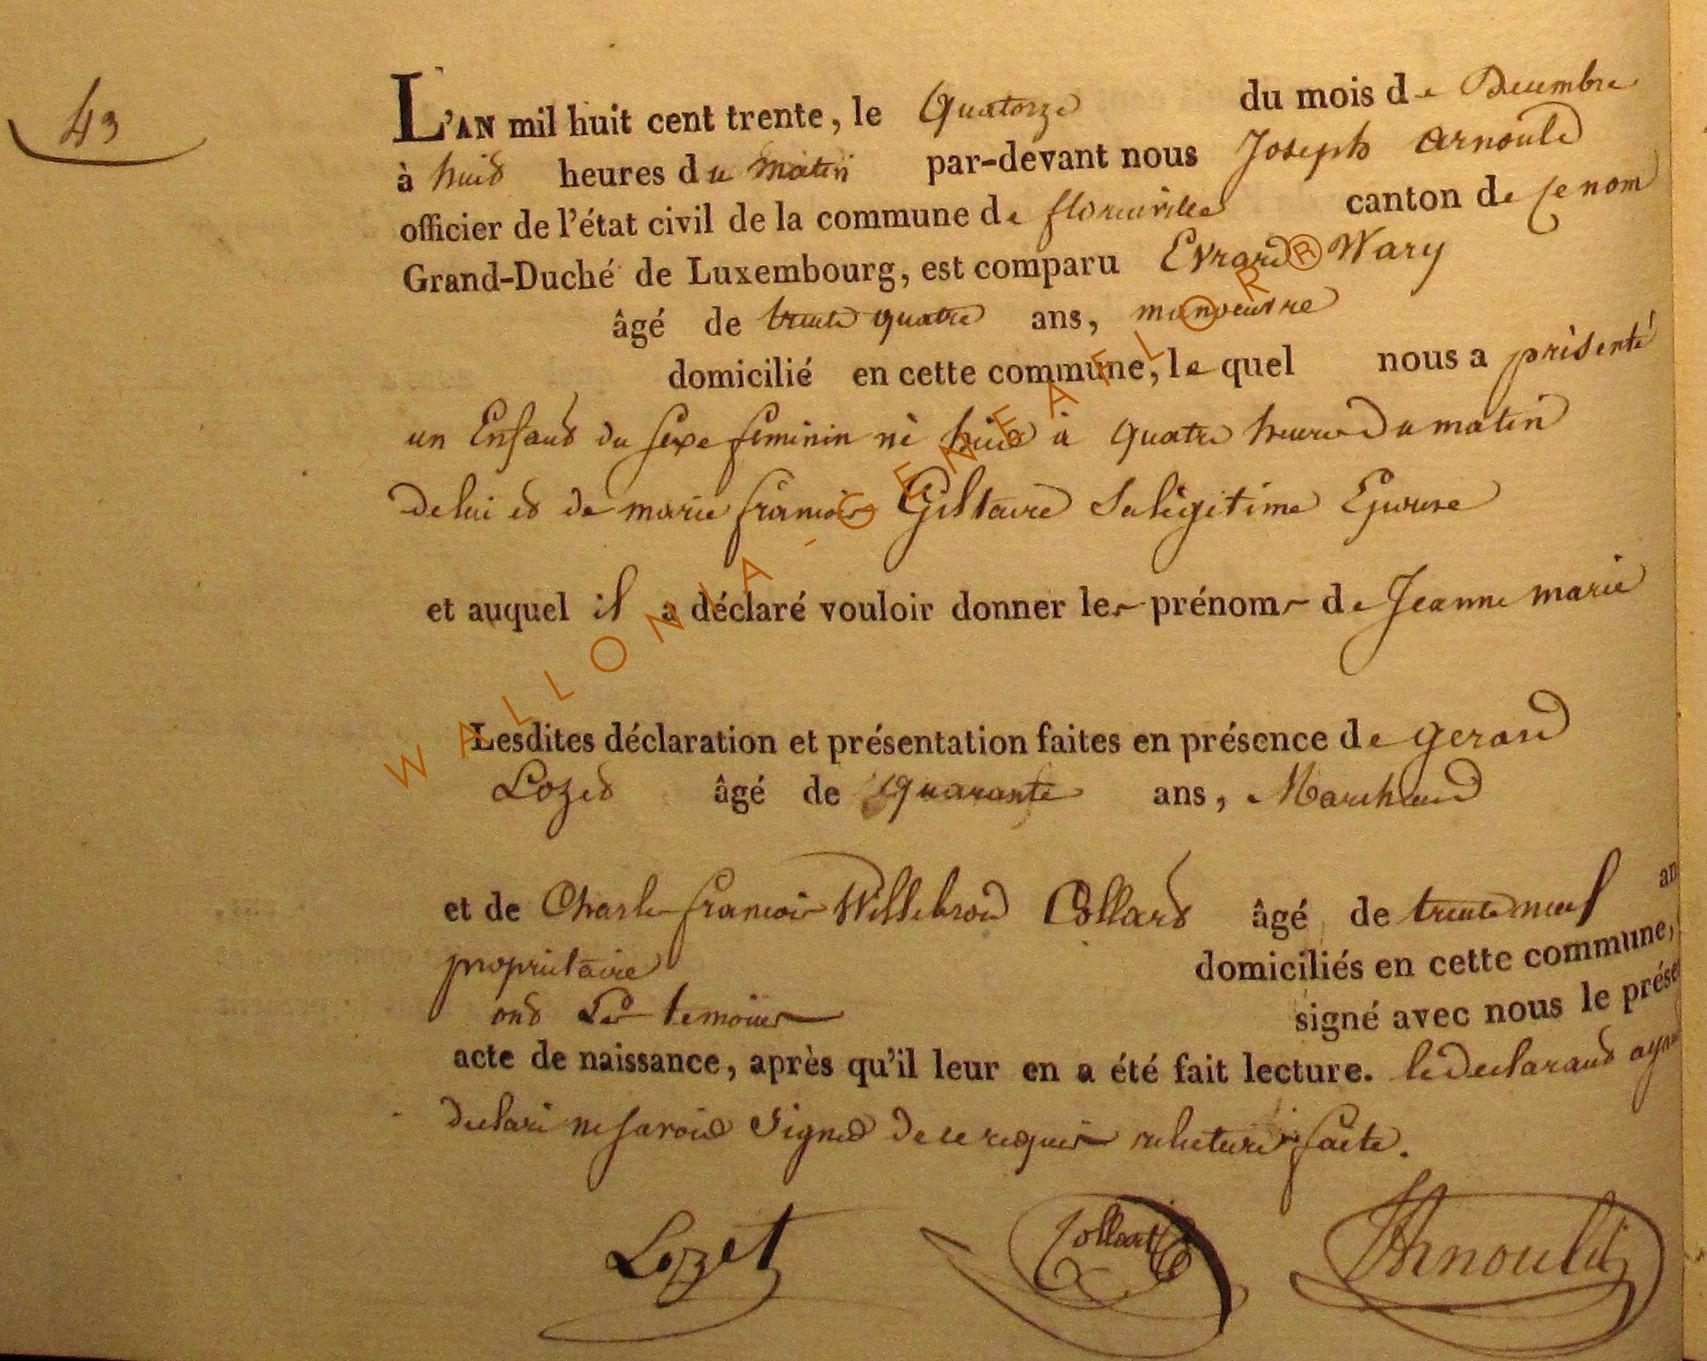 43
L'AN mil huit cent trente, le Quatorze du mois de Decembre
à huit heures du matin par-devant nous Joseph Arnould
officier de l'état civil de la commune de florenville canton de ce nom
Grand-Duché de Luxembourg, est comparu Evrard Wary
âgé de trente quatre ans, manoeuvre
domicilié en cette commune, le quel nous a présenté
un Enfant du sexe feminin né à quatre heures du matin
de lui et de marie francoise Giltaire Sa légitime Epouse
et auquel il a déclaré vouloir donner les prénoms de Jeanne marie
Lesdites déclaration et présentation faites en présence de gerard
Lozet âgé de quarante ans, Marchand
et de Charles francois Willebrord Collard âgé de trente neuf an
propriétaire domiciliés en cette commune,
ont Les temoins signé avec nous le prése
acte de naissance, après qu'il leur en a été fait lecture. le declarant ayant
declaré ne savoir Signer de ce requis faite.
Lozet Collart Arnould
WALLONIA - GENEAFLOR®